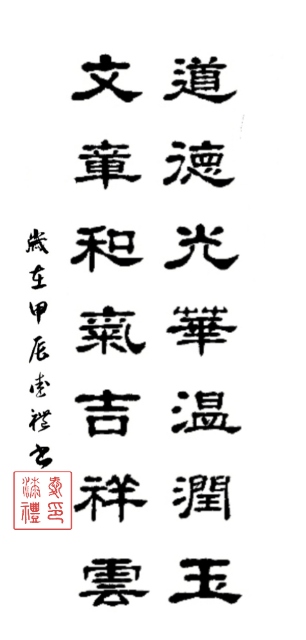 道德光華温潤玉
文章和氣吉祥雲
歲在甲辰
禮書